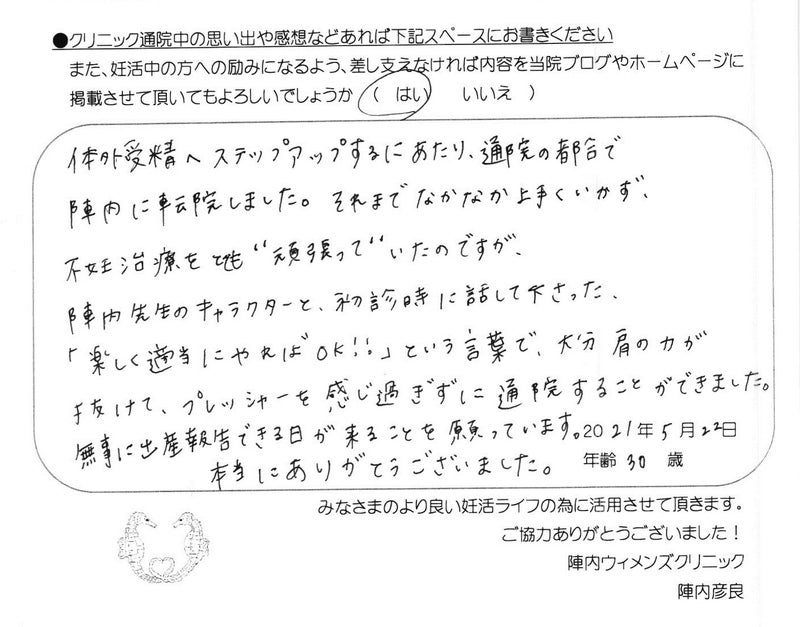 ●クリニック通院中の思い出や感想などあれば下記スペースにお書きください
また、妊活中の方への励みになるよう、差し支えなければ内容を当院ブログやホームページに
掲載させて頂いてもよろしいでしょうか ( はい いいえ )
体外受精へステップアップするにあたり、通院の都合で
陣内に転院しました。それまでなかなか上手くいかず、
不妊治療をとても“頑張って”いたのですが、
陣内先生のキャラクターと、初診時に話して下さった、
「楽しく適当にやればOK!!」という言葉で、大分肩の力が
抜けて、プレッシャーを感じ過ぎずに通院することができました。
無事に出産報告できる日が来ることを願っています。2021年5月22日
本当にありがとうございました。 年齢 30 歳
みなさまのより良い妊活ライフの為に活用させて頂きます。
ご協力ありがとうございました!
陣内ウィメンズクリニック
陣内彦良